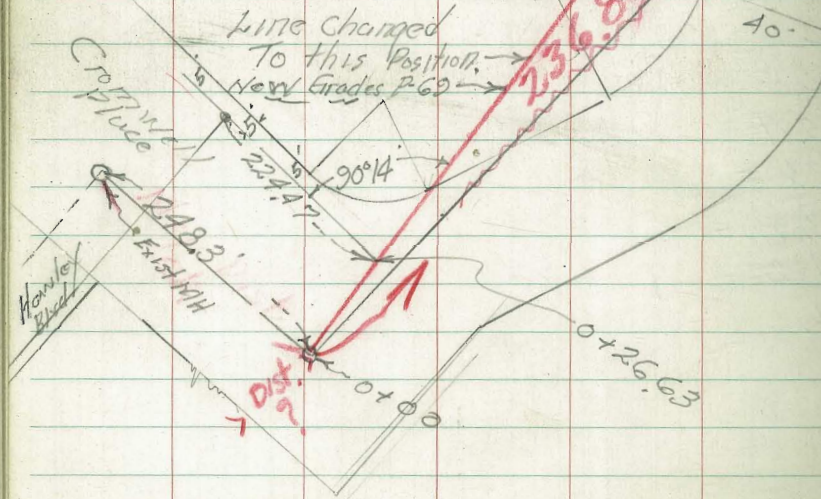 Line Changed
To this Position.
New Grades P-69
236.8
40
Cromwell
Place
5
5
5
224.47
90°14'
248.3
Exist MH
Hanley
Blvd
0+26.63
Dist.
?
0+00